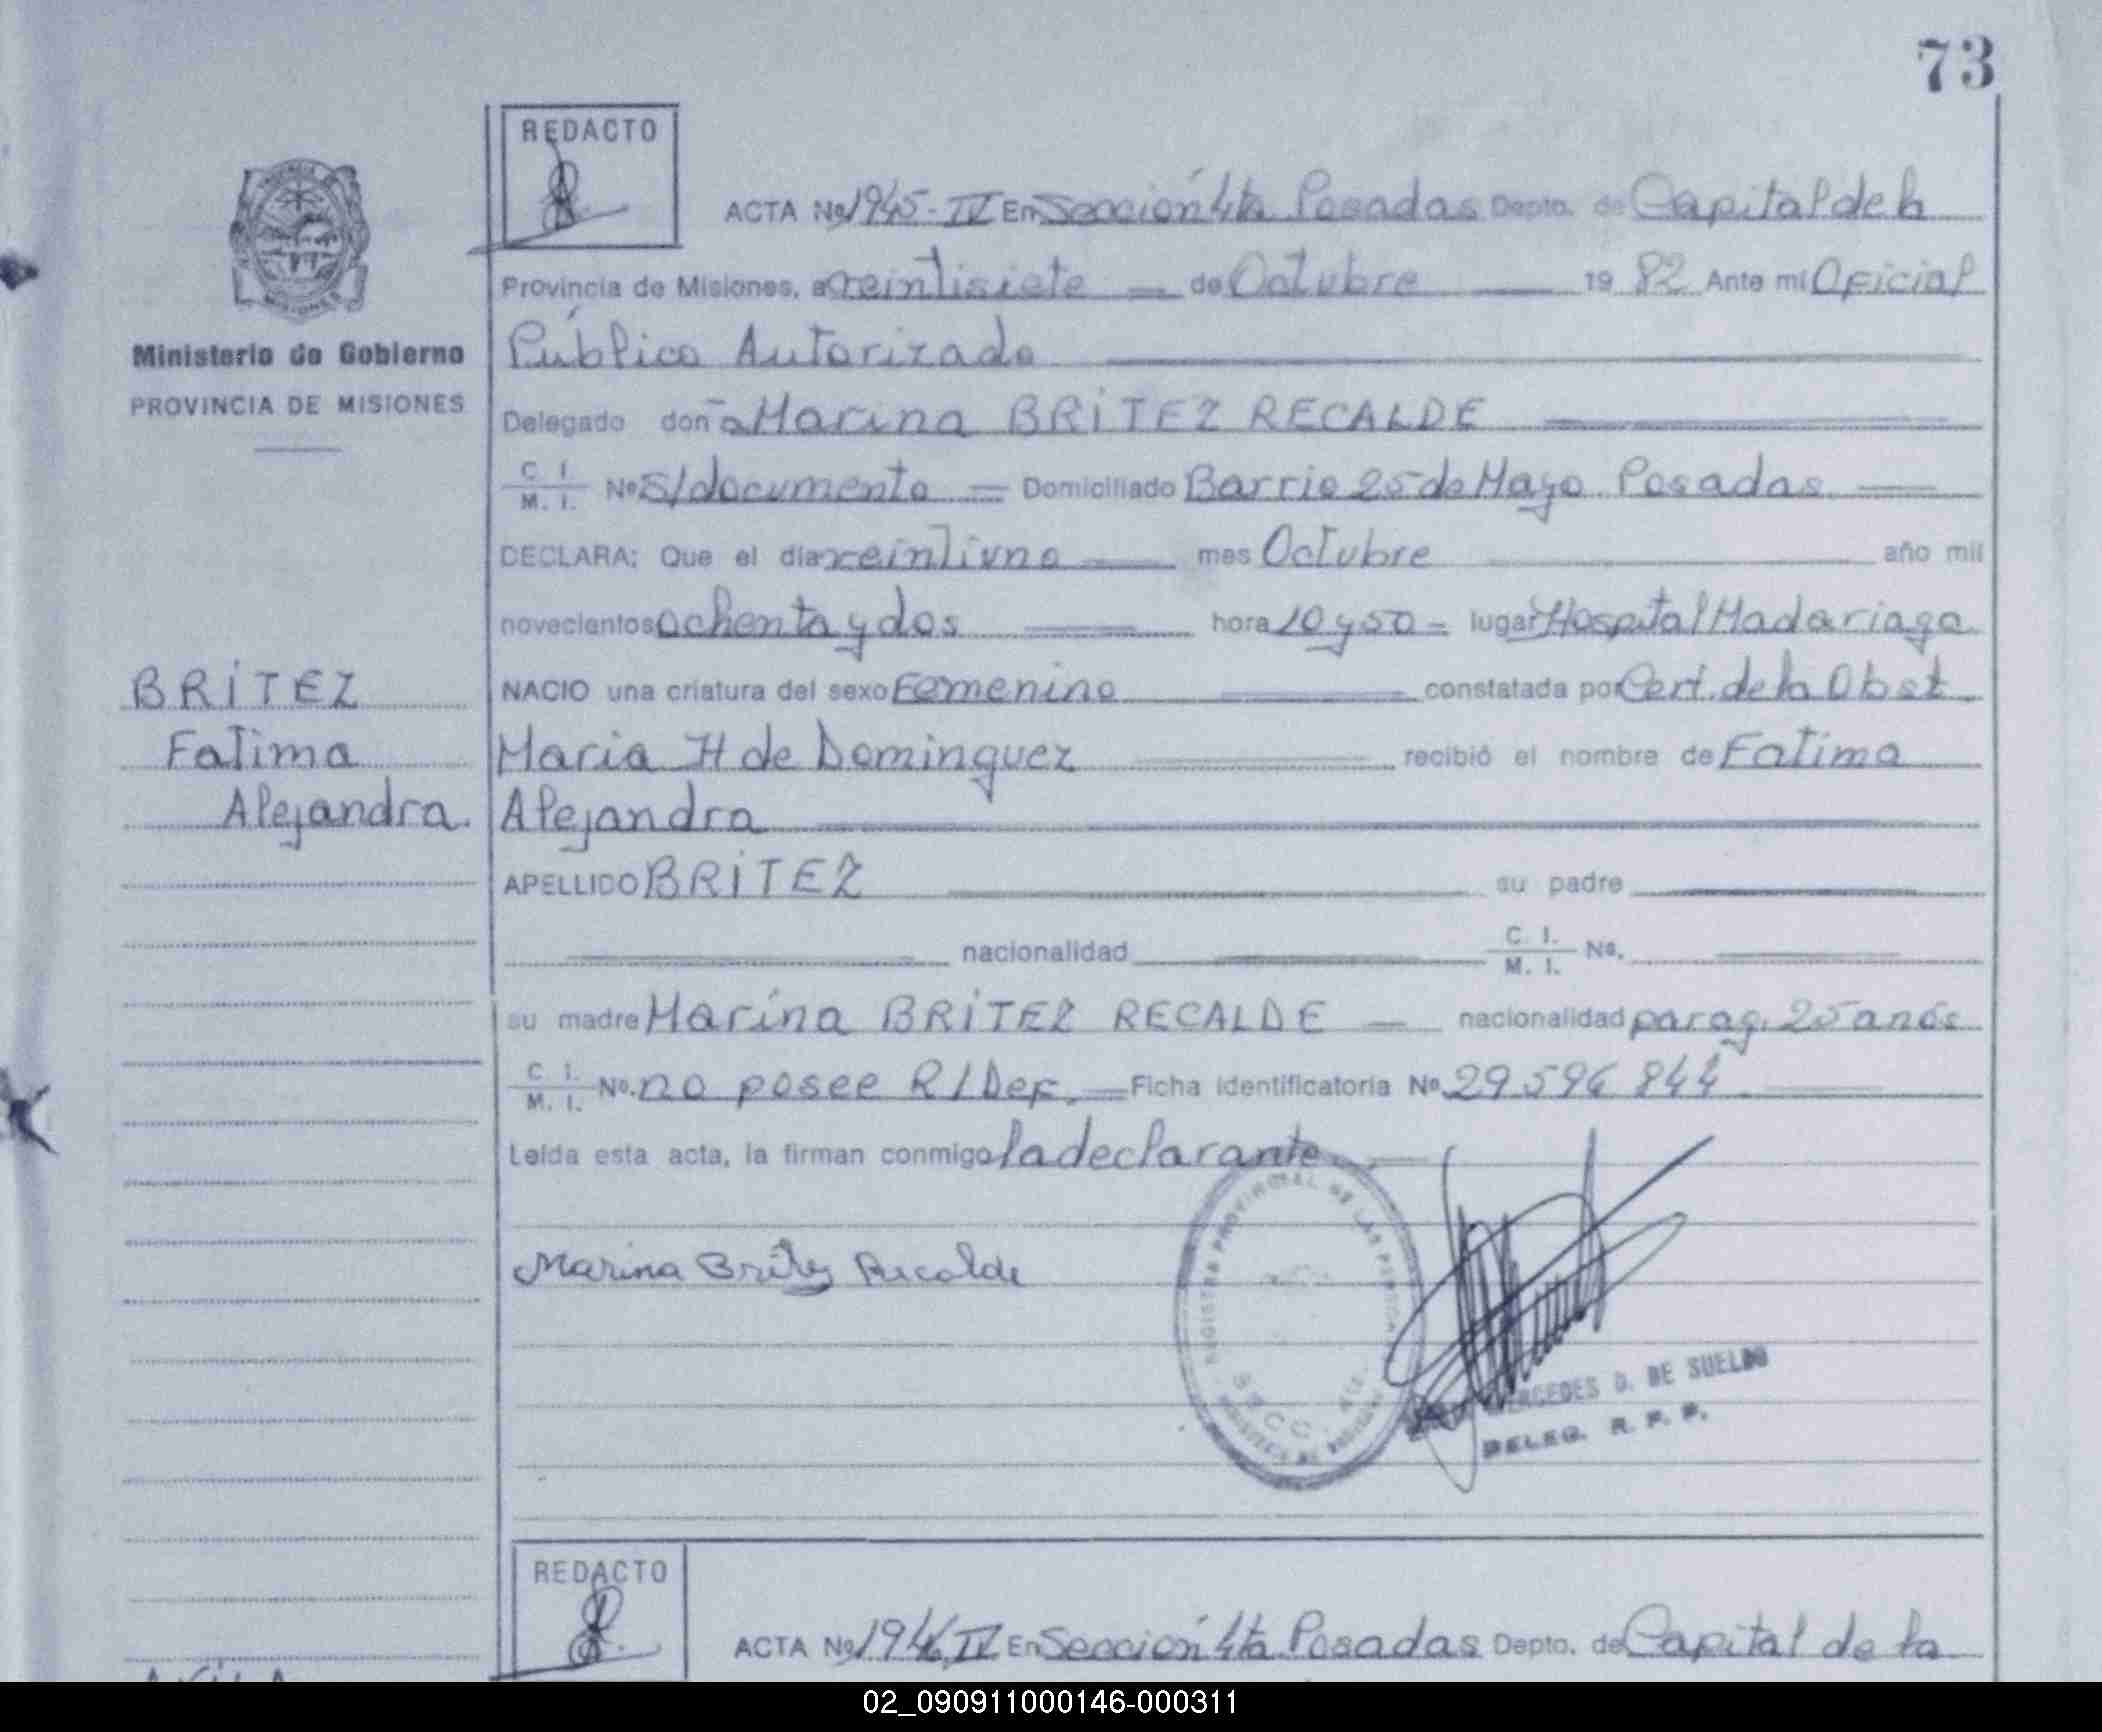 73
REDACTO
ACTA Nº 1945-IV En Sección 4ta Posadas Depto. de Capital de la
Provincia de Misiones, a veintisiete de Octubre 1982 Ante mí Oficial
Ministerio de Gobierno
Público Autorizado
PROVINCIA DE MISIONES
Delegado doña Marina BRITEZ RECALDE
C. I. / M. I. Nº S/documento Domiciliado Barrio 25 de Mayo Posadas
DECLARA: Que el día veintiuno mes Octubre año mil
novecientos ochenta y dos hora 10 y 50 lugar Hospital Madariaga
BRITEZ
NACIO una criatura del sexo Femenino constatada por Cert. de la Obst
Fatima
Maria H de Dominguez recibió el nombre de Fatima
Alejandra
Alejandra
APELLIDO BRITEZ su padre
nacionalidad C. I. / M. I. Nº.
su madre Marina BRITEZ RECALDE nacionalidad parag. 25 años
C. I. / M. I. Nº. no posee R/Def. Ficha identificatoria Nº 29.594 844
Leída esta acta, la firman conmigo la declarante
Marina Britez Recalde
REGISTRO PROVINCIAL DE LAS PERSONAS
PROVINCIA DE MISIONES
MERCEDES D. DE SUELDO
DELEG. R. P. P.
REDACTO
ACTA Nº 1946 IV En Sección 4ta Posadas Depto. de Capital de la
02_090911000146-000311